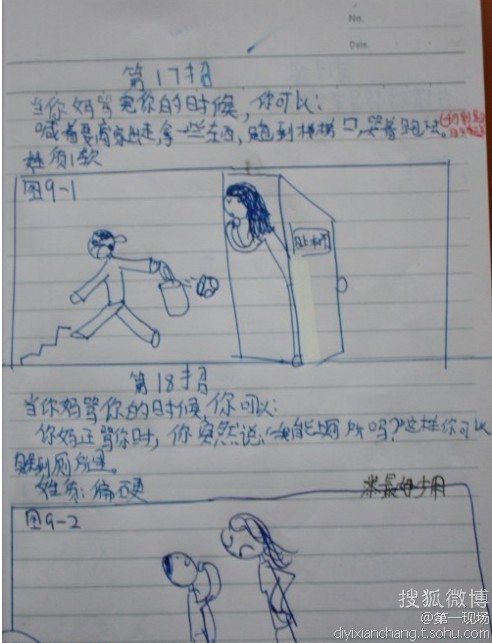 No.
Date
第17招
当你妈骂完你的时候，你可以：
喊着要离家出走拿一些东西，跑到楼梯口，哭着跑
性质：软
图9-1
第18招
当你妈骂你的时候，你可以：
你妈正骂你时，你突然说，"我能上厕所吗？"这样你可以
跑到厕所里。
性质：偏硬
※最好少用
图9-2
搜狐微博
@第一现场
diyixianchang.t.sohu.com